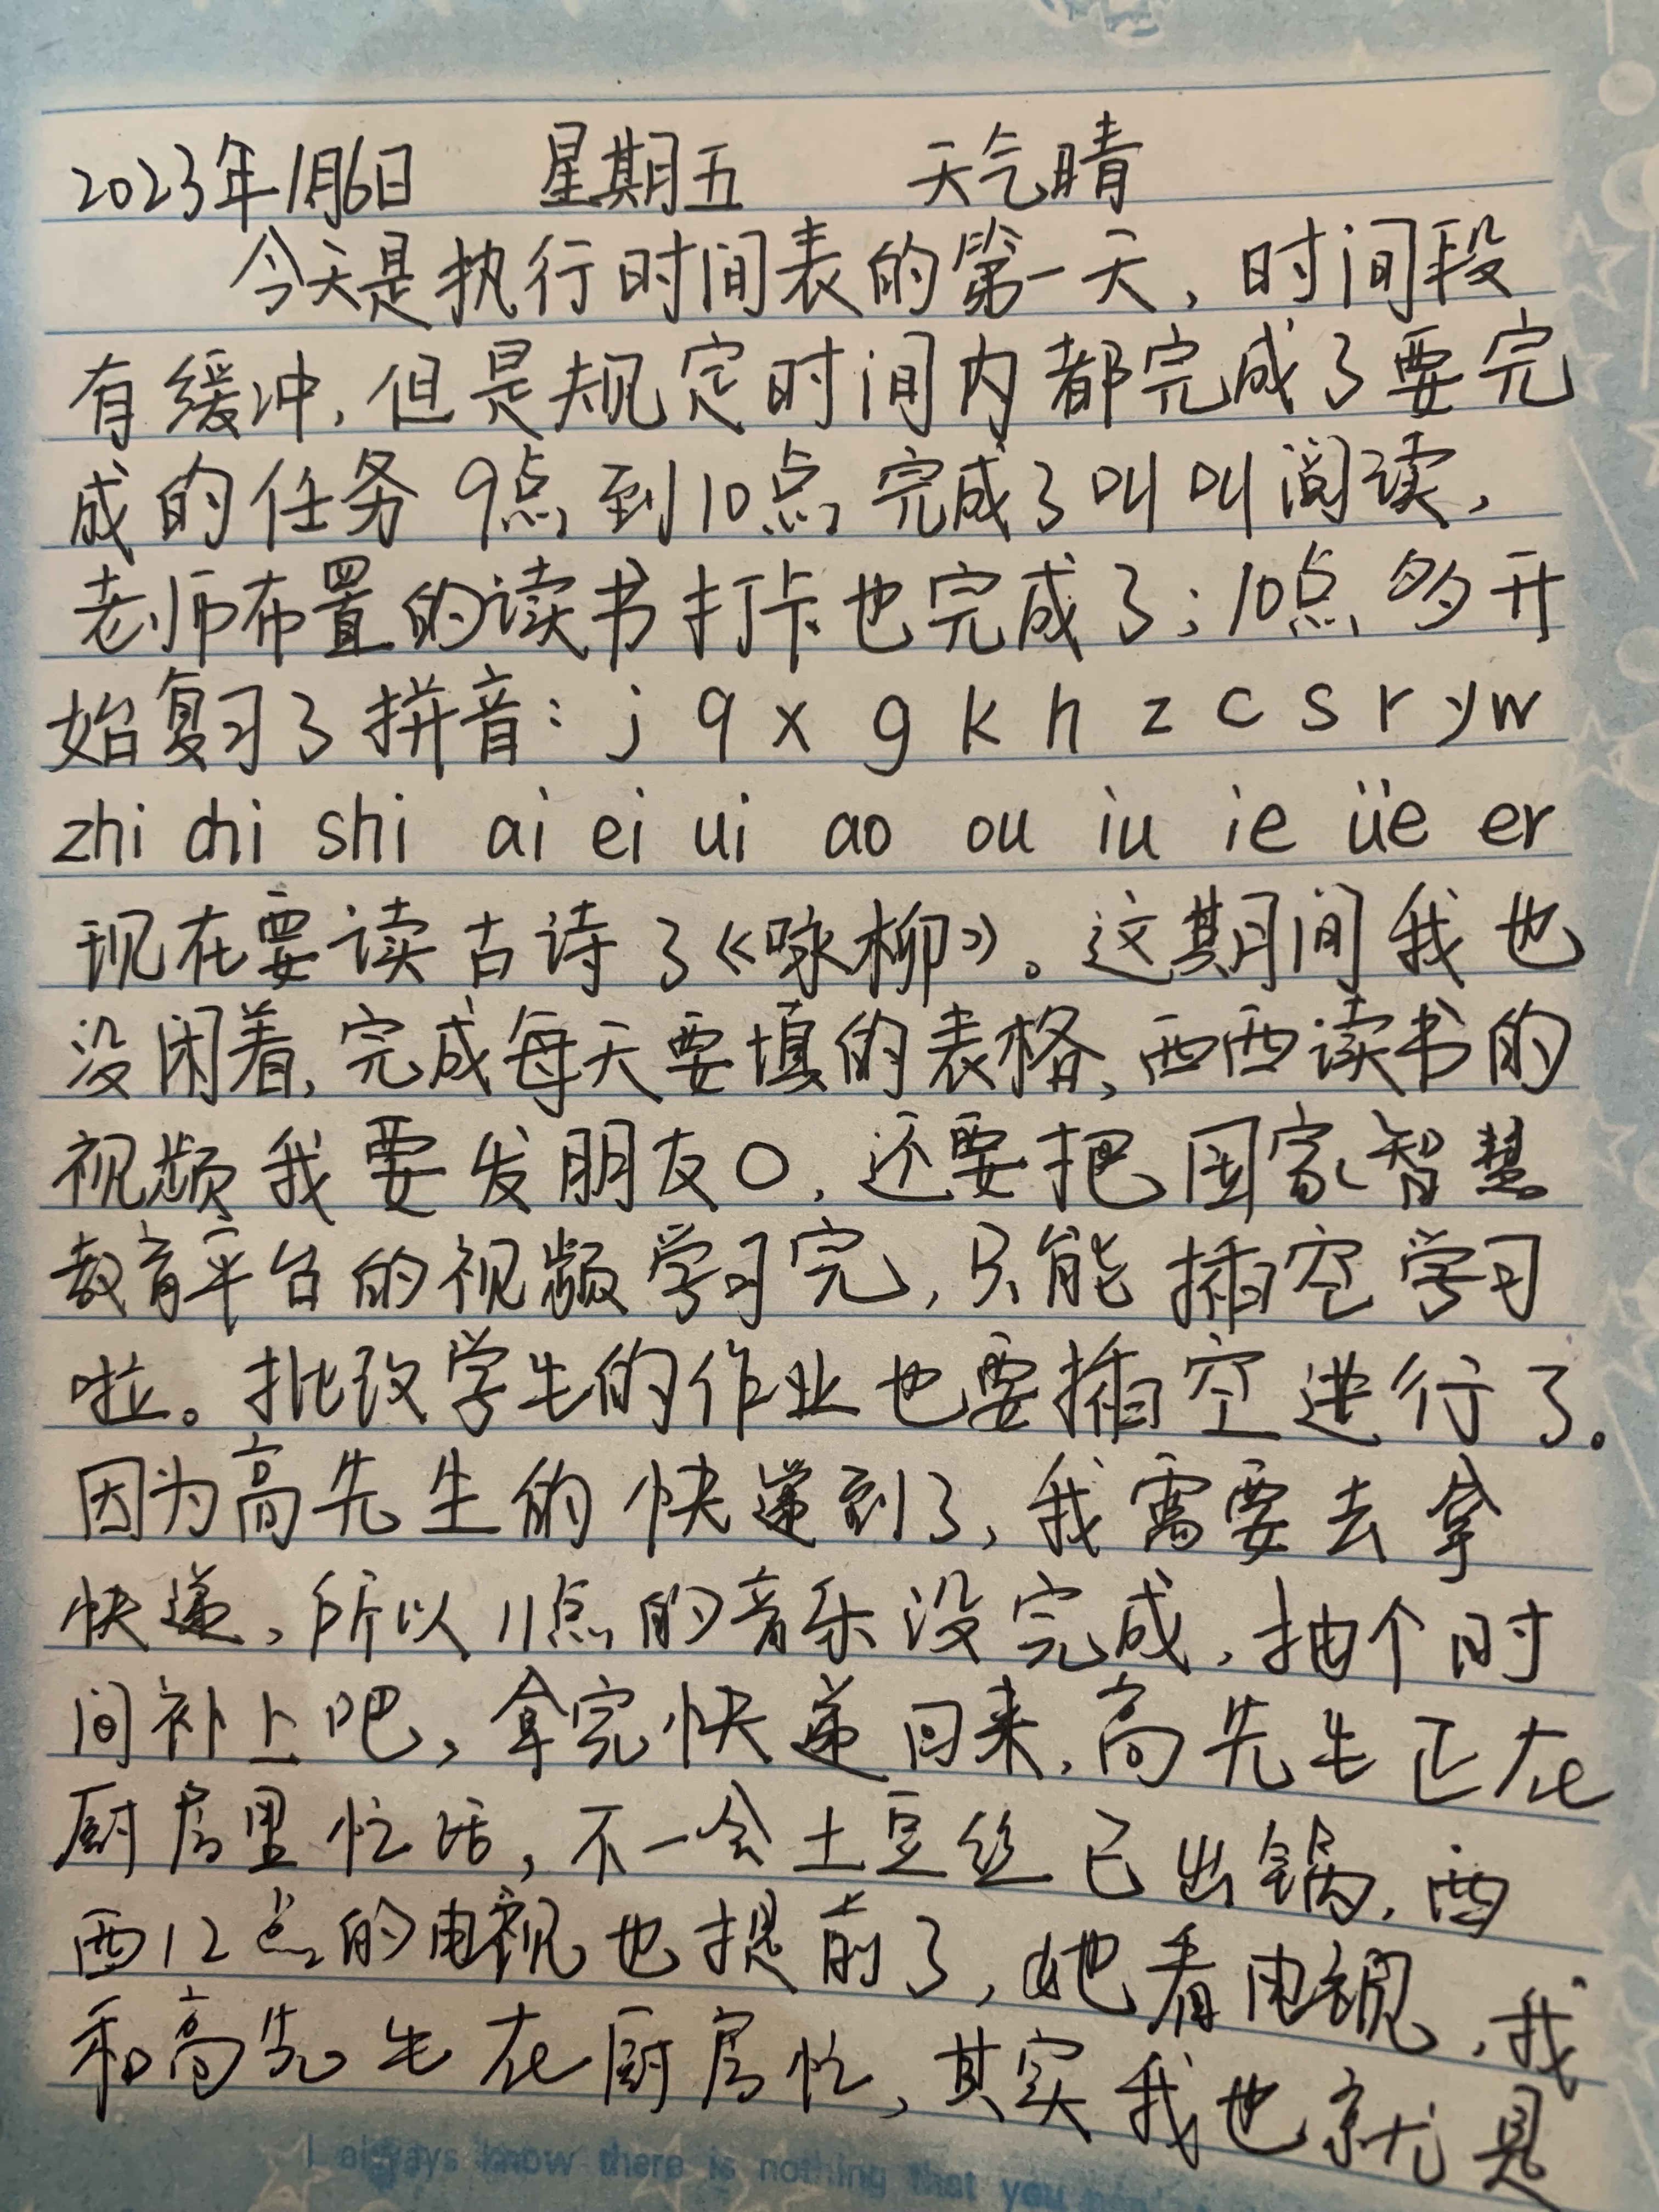 2023年1月6日 星期五 天气晴
今天是执行时间表的第一天,时间段
有缓冲,但是规定时间内都完成了要完
成的任务 9点到10点完成了叫叫阅读,
老师布置的读书打卡也完成了;10点多开
始复习了拼音:j q x g k h z c s r y w
zhi chi shi ai ei ui ao ou iu ie üe er
现在要读古诗了《咏柳》。这期间我也
没闲着,完成每天要填的表格,西西读书的
视频我要发朋友〇,还要把国家智慧
教育平台的视频学习完,只能插空学习
啦。批改学生的作业也要插空进行了。
因为高先生的快递到了,我需要去拿
快递,所以11点的音乐没完成,抽个时
间补上吧,拿完快递回来,高先生正在
厨房里忙活,不一会土豆丝已出锅,西
西12点的电视也提前了,她看电视,我
和高先生在厨房忙,其实我也就是
I always know there is nothing that you